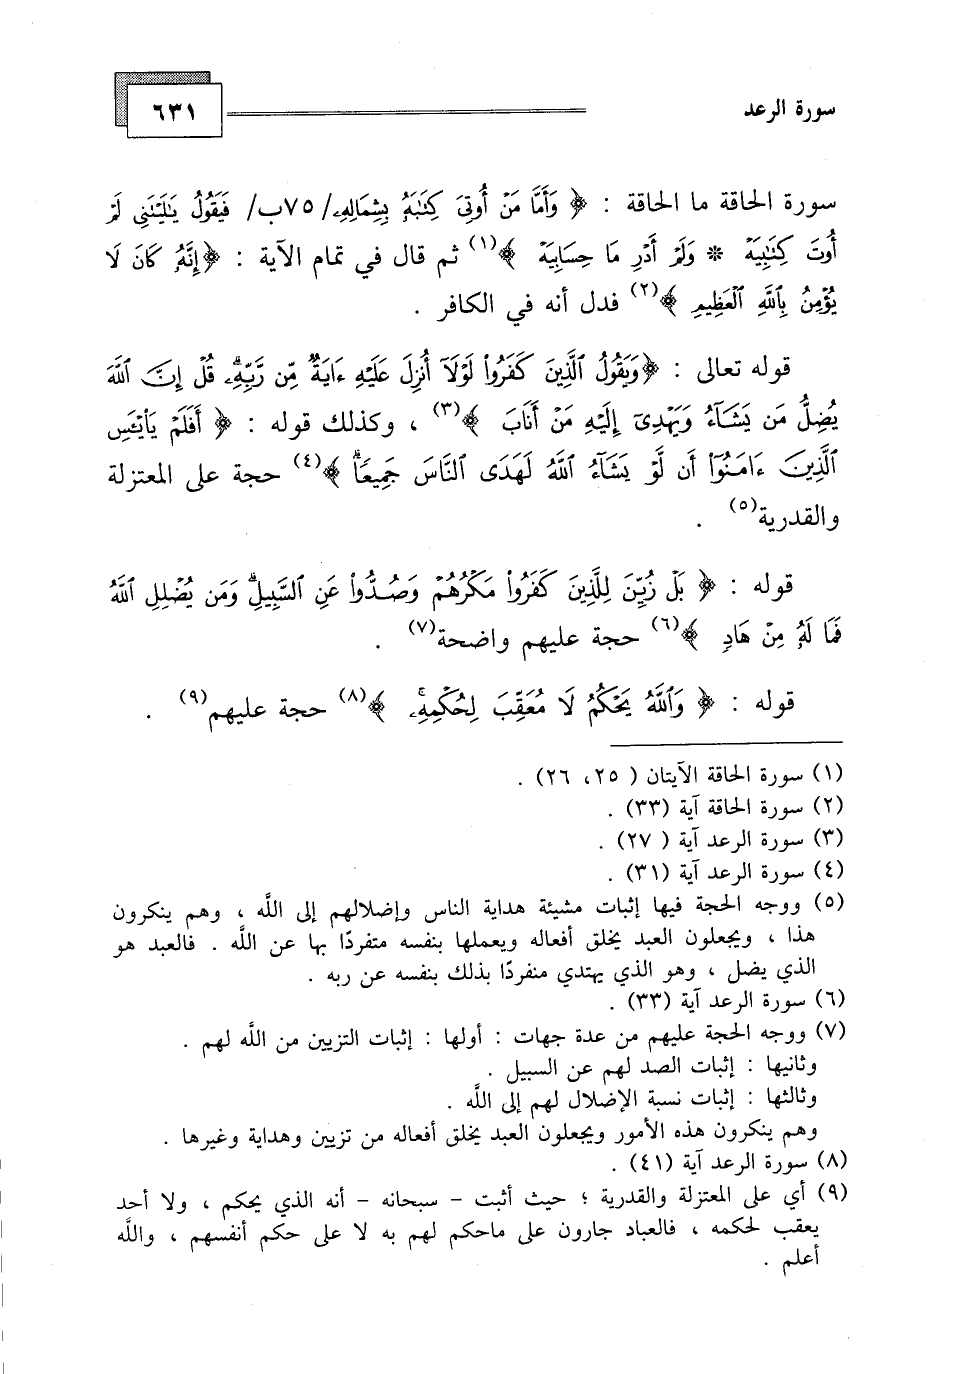 سورة الرعد
٦٣١
سورة الحاقة ما الحاقة : ﴿ وَأَمَّا مَنْ أُوتِىَ كِتَٰبَهُۥ بِشِمَالِهِۦ/ ٧٥ب/ فَيَقُولُ يَٰلَيْتَنِى لَمْ
أُوتَ كِتَٰبِيَهْ * وَلَمْ أَدْرِ مَا حِسَابِيَهْ ﴾(١) ثم قال في تمام الآية : ﴿إِنَّهُۥ كَانَ لَا
يُؤْمِنُ بِٱللَّهِ ٱلْعَظِيمِ ﴾(٢) فدل أنه في الكافر .
قوله تعالى : ﴿وَيَقُولُ ٱلَّذِينَ كَفَرُوا۟ لَوْلَآ أُنزِلَ عَلَيْهِ ءَايَةٌ مِّن رَّبِّهِۦۗ قُلْ إِنَّ ٱللَّهَ
يُضِلُّ مَن يَشَآءُ وَيَهْدِىٓ إِلَيْهِ مَنْ أَنَابَ ﴾(٣) ، وكذلك قوله : ﴿ أَفَلَمْ يَا۟يْـَٔسِ
ٱلَّذِينَ ءَامَنُوٓا۟ أَن لَّوْ يَشَآءُ ٱللَّهُ لَهَدَى ٱلنَّاسَ جَمِيعًاۗ ﴾(٤) حجة على المعتزلة
والقدرية(٥) .
قوله : ﴿ بَلْ زُيِّنَ لِلَّذِينَ كَفَرُوا۟ مَكْرُهُمْ وَصُدُّوا۟ عَنِ ٱلسَّبِيلِۗ وَمَن يُضْلِلِ ٱللَّهُ
فَمَا لَهُۥ مِنْ هَادٍ ﴾(٦) حجة عليهم واضحة(٧) .
قوله : ﴿ وَٱللَّهُ يَحْكُمُ لَا مُعَقِّبَ لِحُكْمِهِۦۚ ﴾(٨) حجة عليهم(٩) .
(١) سورة الحاقة الآيتان ( ٢٥، ٢٦) .
(٢) سورة الحاقة آية (٣٣) .
(٣) سورة الرعد آية ( ٢٧) .
(٤) سورة الرعد آية (٣١) .
(٥) ووجه الحجة فيها إثبات مشيئة هداية الناس وإضلالهم إلى اللَّه ، وهم ينكرون
هذا ، ويجعلون العبد يخلق أفعاله ويعملها بنفسه متفردًا بها عن اللَّه . فالعبد هو
الذي يضل ، وهو الذي يهتدي منفردًا بذلك بنفسه عن ربه .
(٦) سورة الرعد آية (٣٣) .
(٧) ووجه الحجة عليهم من عدة جهات : أولها : إثبات التزيين من اللَّه لهم .
وثانيها : إثبات الصد لهم عن السبيل .
وثالثها : إثبات نسبة الإضلال لهم إلى اللَّه .
وهم ينكرون هذه الأمور ويجعلون العبد يخلق أفعاله من تزيين وهداية وغيرها .
(٨) سورة الرعد آية (٤١) .
(٩) أي على المعتزلة والقدرية ؛ حيث أثبت – سبحانه – أنه الذي يحكم ، ولا أحد
يعقب لحكمه ، فالعباد جارون على ماحكم لهم به لا على حكم أنفسهم ، واللَّه
أعلم .